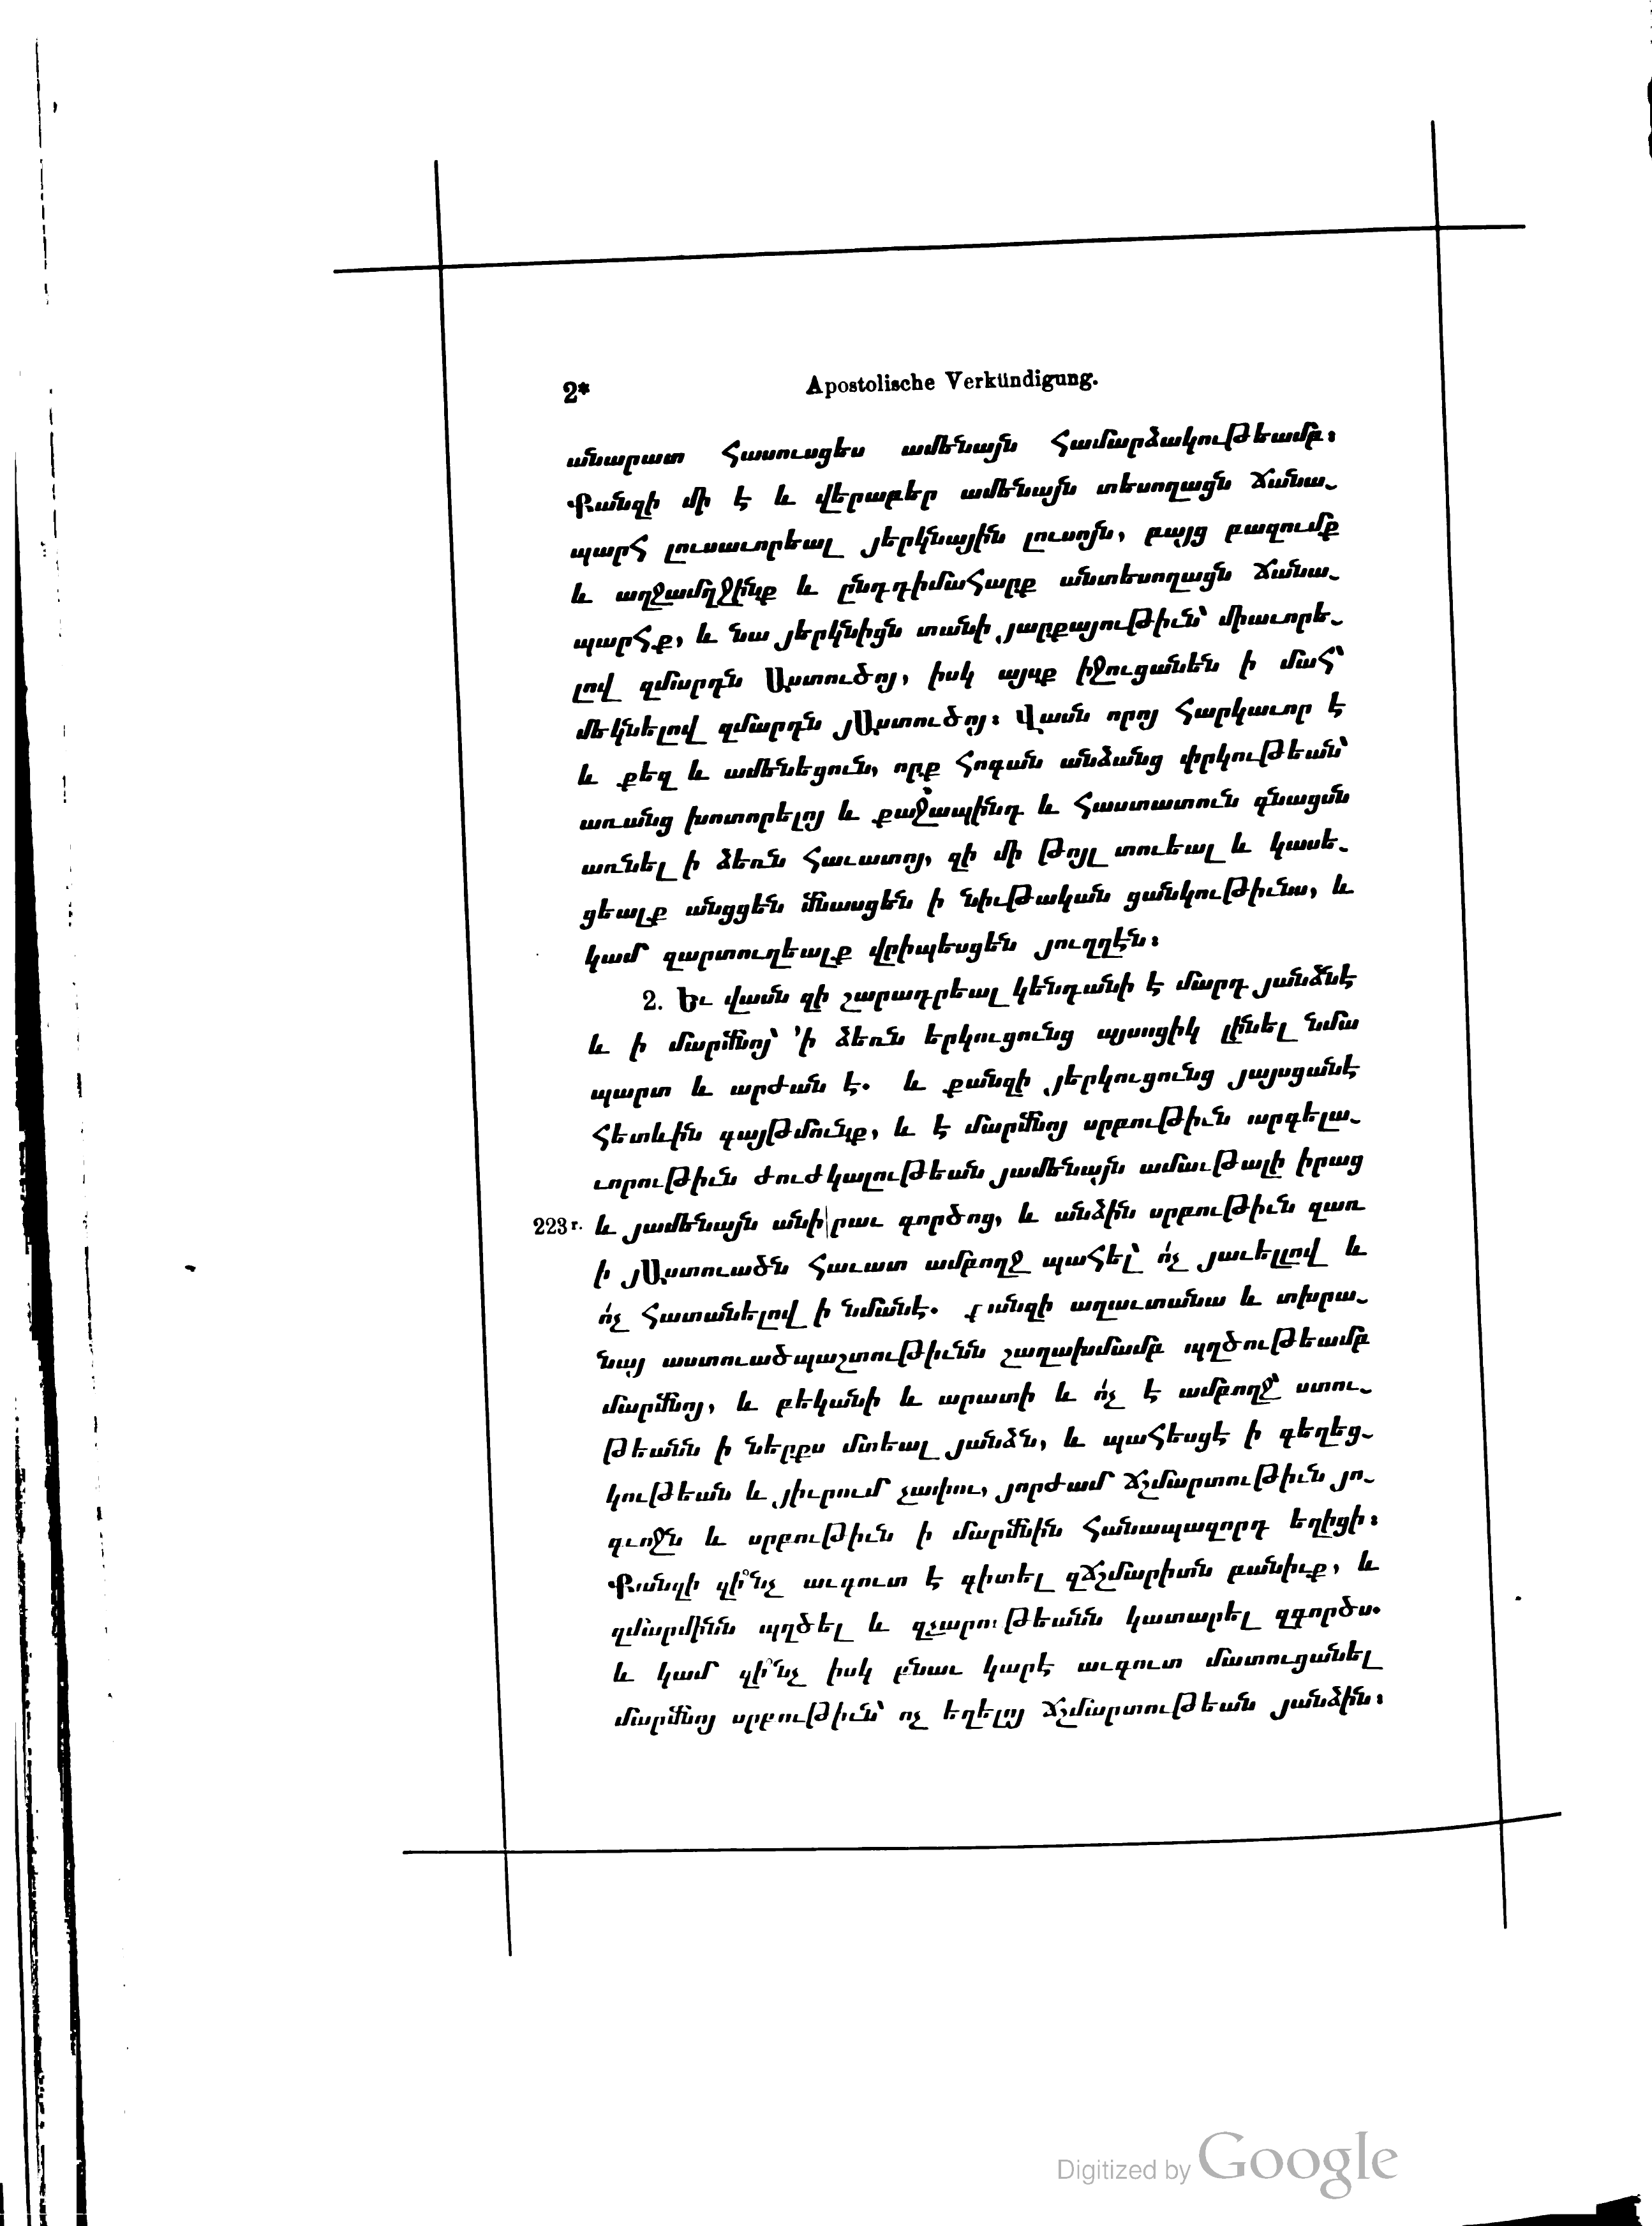 2* Apostolische Verkündigung.
անարատ հասուսցես ամենայն համարձակութեամբ։
Քանզի մի է և վերաբեր ամենայն տեսողացն ճանա֊
պարհ լուսաւորեալ յերկնային լուսոյն, բայց բազումք
և աղջամղջինք և ընդդիմահարք անտեսողացն ճանա֊
պարհք, և նա յերկնիցն տանի յարքայութիւն՝ միաւորե֊
լով զմարդն Աստուծոյ, իսկ այսք իջուցանեն ի մահ՝
մեկնելով զմարդն յԱստուծոյ։ Վասն որոյ հարկաւոր է
և քեզ և ամենեցուն, որք հոգան անձանց փրկութեան՝
առանց խոտորելոյ և քաջապինդ և հաստատուն գնացմն
առնել ի ձեռն հաւատոյ, զի մի թոյլ տուեալ և կասե֊
ցեալք անցցեն մնասցեն ի նիւթական ցանկութիւնս, և
կամ զարտուղեալք վրիպեսցեն յուղղէն։
2. Եւ վասն զի շարադրեալ կենդանի է մարդ յանձնէ
և ի մարմնոյ՝ ՚ի ձեռն երկուցունց այսոցիկ լինել նմա
պարտ և արժան է. և քանզի յերկուցունց յայսցանէ
հետևին գայթմունք, և է մարմնոյ սրբութիւն արգելա֊
ւորութիւն ժուժկալութեան յամենայն ամաւթալի իրաց
223 r. և յամենայն անի|րաւ գործոց, և անձին սրբութիւն զառ
ի յԱստուածն հաւատ ամբողջ պահել՝ ո՛չ յաւելլով և
ո՛չ հատանելով ի նմանէ. քանզի աղաւտանա և տխրա֊
նայ աստուածպաշտութիւնն շաղախմամբ պղծութեամբ
մարմնոյ, և բեկանի և արատի և ո՛չ է ամբողջ՝ ստու֊
թեանն ի ներքս մտեալ յանձն, և պահեսցէ ի գեղեց֊
կութեան և յիւրում չափու, յորժամ ճշմարտութիւն յո֊
գւոջն և սրբութիւն ի մարմնին հանապազորդ եղիցի։
Քանզի զի՞նչ աւգուտ է գիտել զճշմարիտն բանիւք, և
զմարմինն պղծել և զչարութեանն կատարել զգործս.
և կամ զի՞նչ իսկ բնաւ կարէ աւգուտ մատուցանել
մարմնոյ սրբութիւն՝ ոչ եղելոյ ճշմարտութեան յանձին։
Digitized by Google